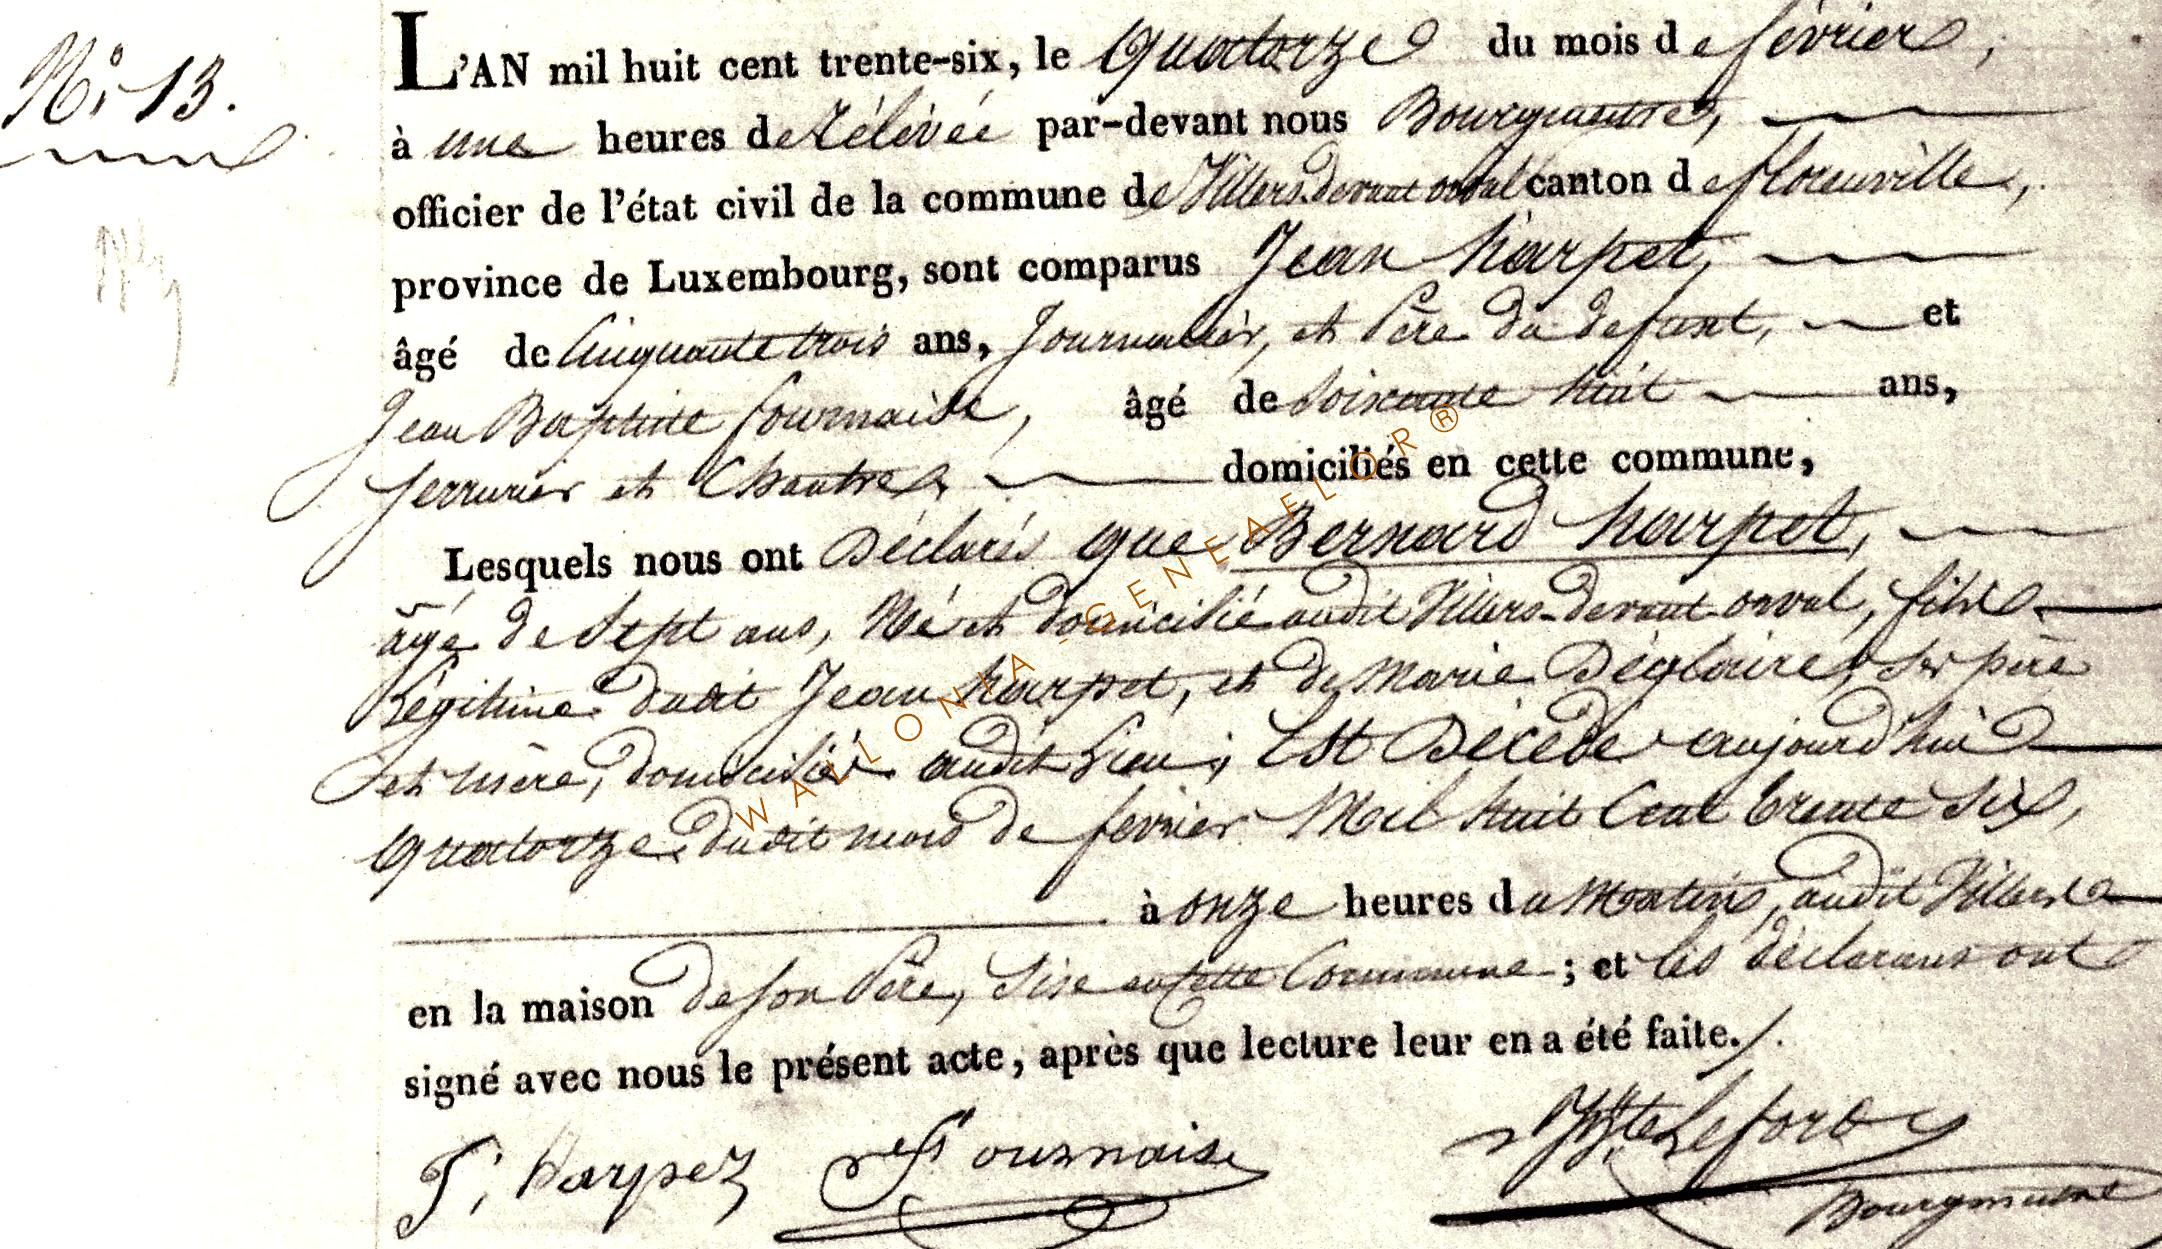 N.° 13.
L'AN mil huit cent trente-six, le quatorze du mois de février,
à une heures de rélévée par-devant nous Bourgmestre,
officier de l'état civil de la commune de Villers-devant orval canton de florenville,
province de Luxembourg, sont comparus Jean harpet,
âgé de Cinquante trois ans, Journalier, et Père du défunt, et
Jean Baptiste fournaise, âgé de Soixante huit ans,
Serrurier et Chantre, domiciliés en cette commune,
Lesquels nous ont Déclarés que Bernard harpet,
âgé de Sept ans, Né et domicilié audit Villers-devant orval, fils
Légitime dudit Jean harpet, et de Marie Déglaire, ses père
et mère, domicilié audit Lieu, Est Décédé aujourd'hui
quatorze dudit mois de fevrier Mil huit Cent trente Six,
à onze heures du Matin, audit Villers
en la maison de son Père, Sise en Cette Commune ; et les déclarans ont
signé avec nous le présent acte, après que lecture leur en a été faite./.
J. Harpez Fournaise Lefort
Bourgmestre
WALLONIA-GENEAFLOR®